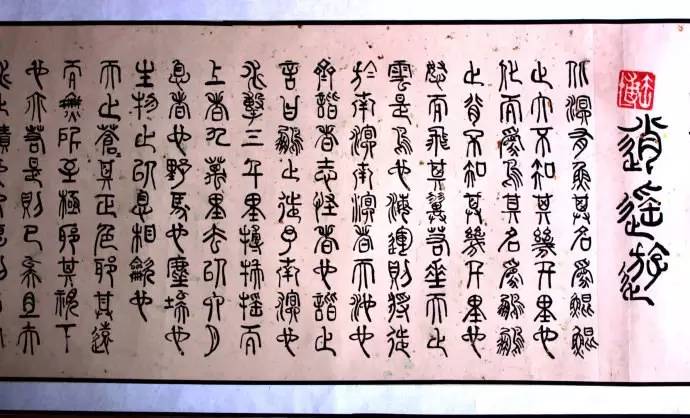 逍遙游
北溟有魚其名為鯤鯤
之大不知其幾千里也
化而為鳥其名為鵬鵬
之背不知其幾千里也
怒而飛其翼若垂天之
雲是鳥也海運則將徙
於南溟南溟者天池也
齊諧者志怪者也諧之
言曰鵬之徙于南溟也
水擊三千里摶扶搖而
上者九萬里去以六月
息者也野馬也塵埃也
生物之以息相吹也
天之蒼其正色耶其遠
而無所至極耶其視下
也亦若是則已矣且夫
水之積